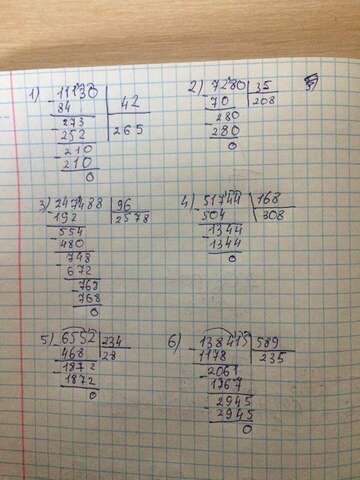 1) - 11130 | 42
84 | 265
- 273
252
- 210
210
0
2) - 7280 | 35
70 | 208
- 280
280
0
3) - 247488 | 96
192 | 2578
- 554
480
- 748
672
- 768
768
0
4) - 51744 | 168
504 | 308
- 1344
1344
0
5) - 6552 | 234
468 | 28
- 1872
1872
0
6) - 138415 | 589
1178 | 235
- 2061
1767
- 2945
2945
0